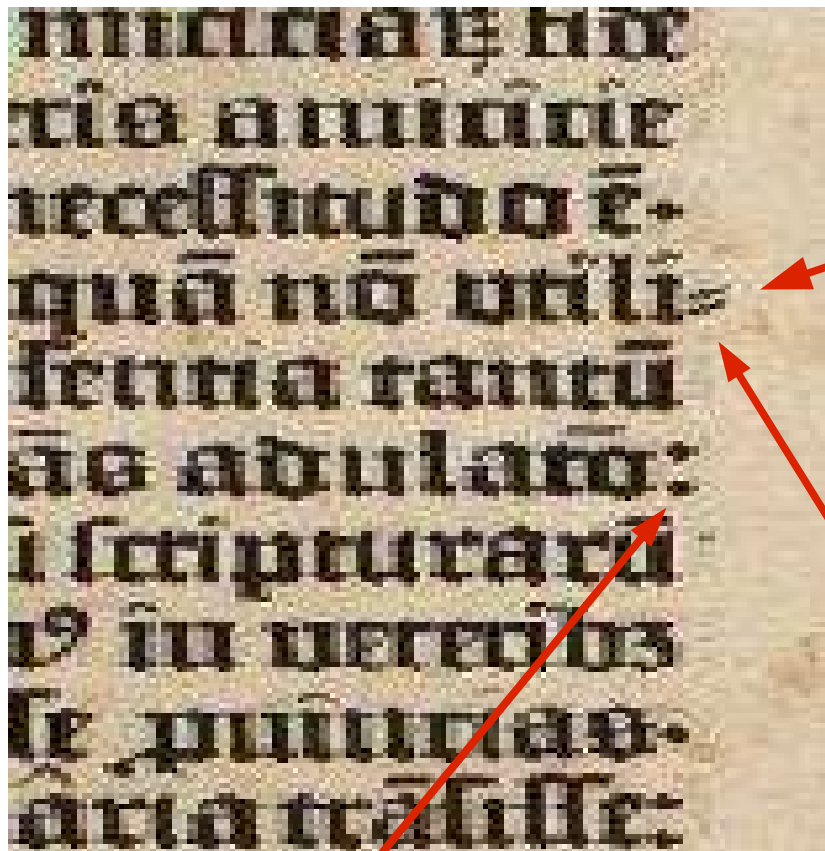 amicicie
necessitudo ē·
quā nō utili⸗
sentia tantū
ās adulatō:
scripturarū
ꝰ in ueteribꝫ
se ꝓuincias·
aria trāsisse: